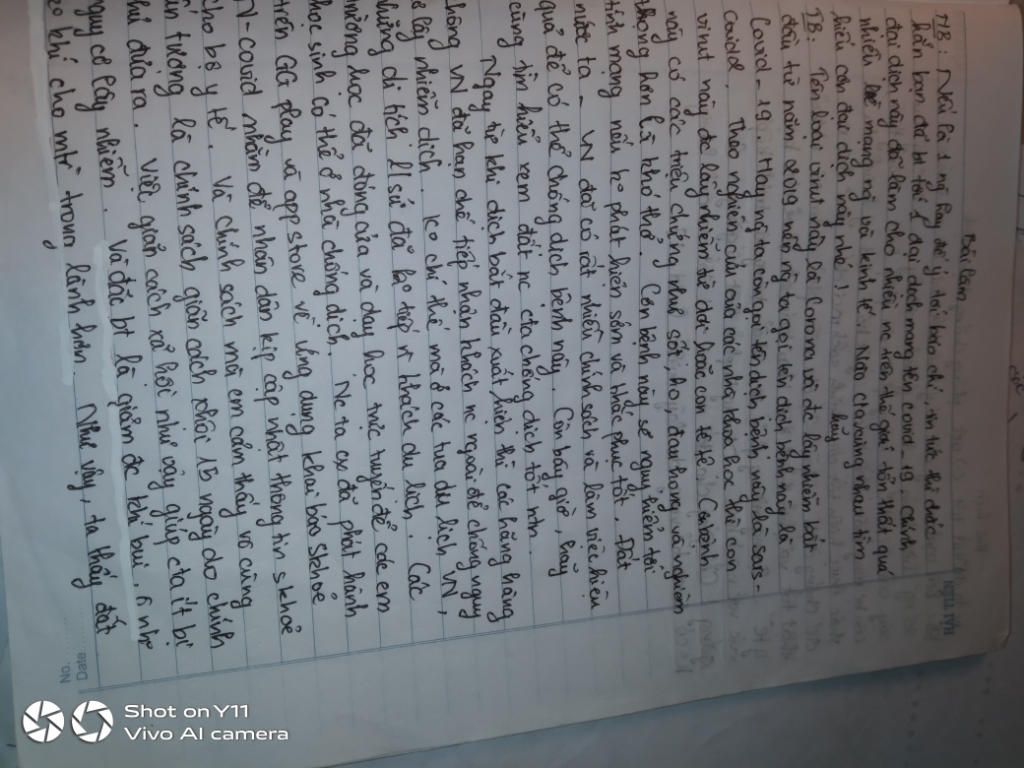 Bài làm
MB: Nếu là 1 ng hay để ý tới báo chí, tin tức thì chắc
hẳn bạn đã bt tới 1 đại dịch mang tên covid-19. Chính
đại dịch này đã làm cho nhiều nc trên thế giới tổn thất quá
nhiều về mạng ng và kinh tế. Nào cta cùng nhau tìm
hiểu căn đại dịch này nhé!
TB. Tên loài virut này là Corona và đc lây nhiễm bắt
đầu từ năm 2019 nên ng ta gọi tên dịch bệnh này là
Covid-19. Hay ng ta còn gọi tên dịch bệnh này là sars-
Covid. Theo nghiên cứu của các nhà khoa học thì con
virut này đc lây nhiễm từ dơi hoặc con tê tê. Căn bệnh
này có các triệu chứng như sốt, ho, đau họng và nghiêm
trọng hơn là khó thở. Căn bệnh này sẽ nguy hiểm tới
tính mạng nếu ko phát hiện sớm và khắc phục tốt. Đất
nước ta - VN đã có rất nhiều chính sách và làm việc hiệu
quả để có thể chống dịch bệnh này. Còn bây giờ, hãy
cùng tìm hiểu xem đất nc cta chống dịch tốt ntn.
Ngay từ khi dịch bắt đầu xuất hiện thì các hãng hàng
không VN đã hạn chế tiếp nhận khách nc ngoài để chống nguy
cơ lây nhiễm dịch. Ko chỉ thế mà ở các tua du lịch VN,
những di tích l sử đã ko tiếp n khách du lịch. Các
trường học đã đóng cửa và dạy học trực tuyến để các em
học sinh có thể ở nhà chống dịch. Nc ta cx đã phát hành
trên GG play và app store về ứng dụng khai báo skhoẻ
N-covid nhằm để nhân dân kịp cập nhật thông tin skhoẻ
cho bộ y tế. Và chính sách mà em cảm thấy vô cùng
ấn tượng là chính sách giãn cách phải 15 ngày do chính
phủ đưa ra. Việc giãn cách xã hội như vậy giúp cta ít bị
nguy cơ lây nhiễm. Và đặc bt là giảm đc khí bụi, ô nhễ
ko khí cho mtr trong lành hơn. Như vậy, ta thấy đất
No.
Date
Shot on Y11
Vivo AI camera